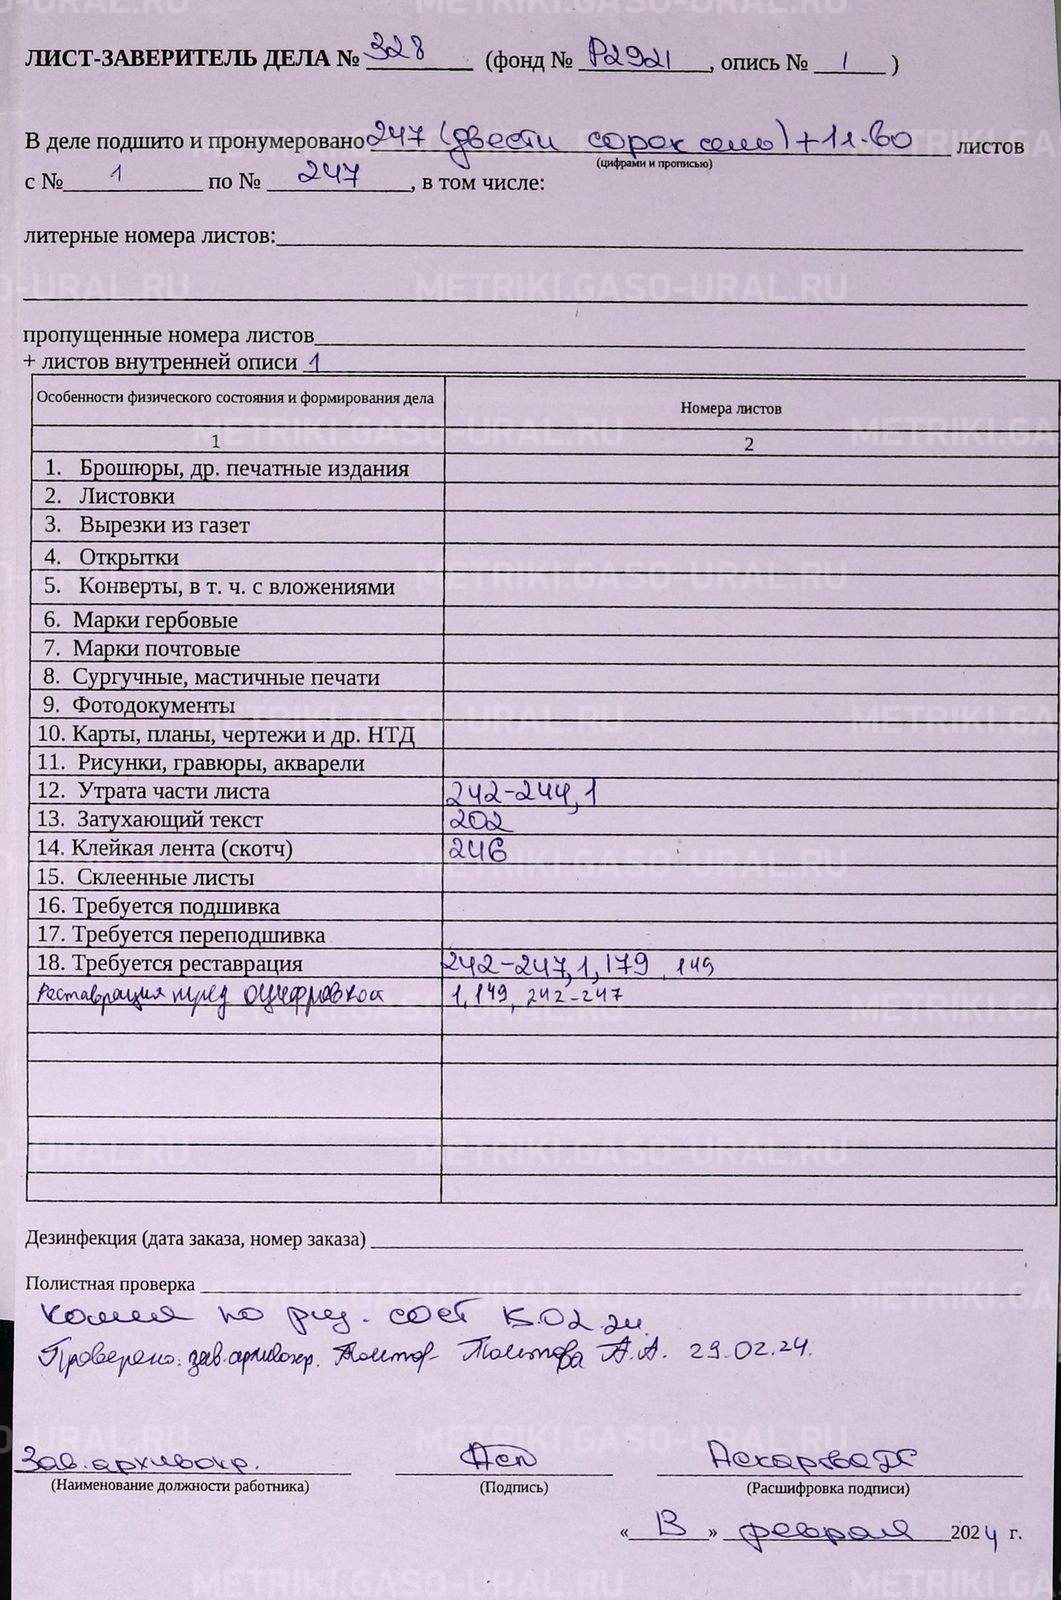 ЛИСТ-ЗАВЕРИТЕЛЬ ДЕЛА № 328 (фонд № Р2921, опись № 1 )
В деле подшито и пронумеровано 247 (двести сорок семь) + 1л. во листов
(цифрами и прописью)
с № 1 по № 247, в том числе:
литерные номера листов:
пропущенные номера листов
+ листов внутренней описи 1
Особенности физического состояния и формирования дела Номера листов
1 2
1. Брошюры, др. печатные издания
2. Листовки
3. Вырезки из газет
4. Открытки
5. Конверты, в т. ч. с вложениями
6. Марки гербовые
7. Марки почтовые
8. Сургучные, мастичные печати
9. Фотодокументы
10. Карты, планы, чертежи и др. НТД
11. Рисунки, гравюры, акварели
12. Утрата части листа 242-244, 1
13. Затухающий текст 202
14. Клейкая лента (скотч) 246
15. Склеенные листы
16. Требуется подшивка
17. Требуется переподшивка
18. Требуется реставрация 242-247, 1, 179, 149
Реставрация пред оцифровкой 1, 149, 242-247
Дезинфекция (дата заказа, номер заказа)
Полистная проверка
по физ. сост
Проверено: зав. архивохр. А.А. 29.02.24.
Зав. архивохр.
(Наименование должности работника) (Подпись) (Расшифровка подписи)
« » февраля 2024 г.
METRIKI.GASO-URAL.RU